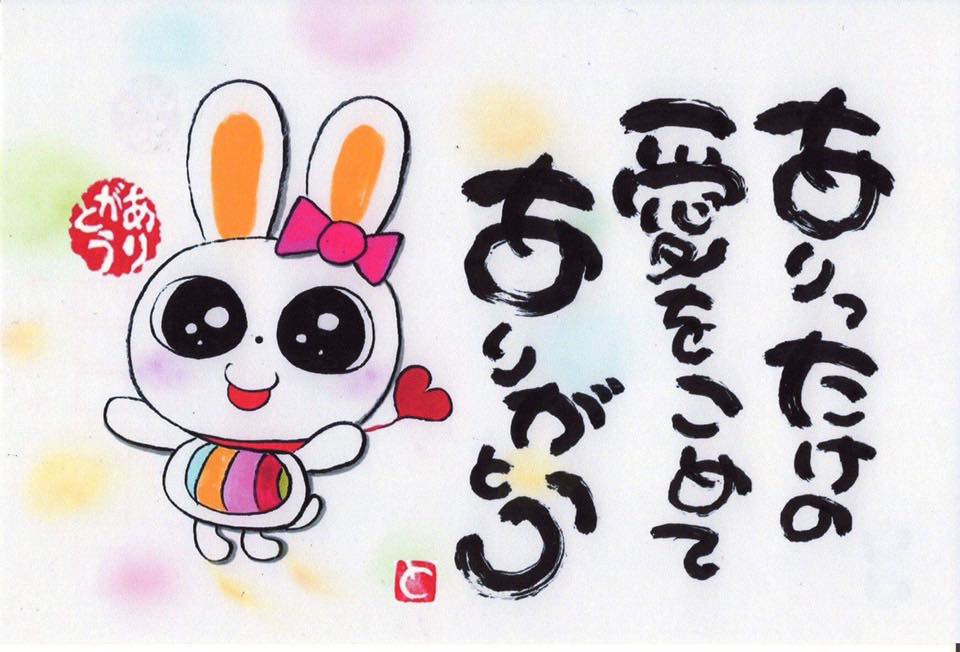 ありったけの
愛をこめて
ありがとう
あり
がとう
と